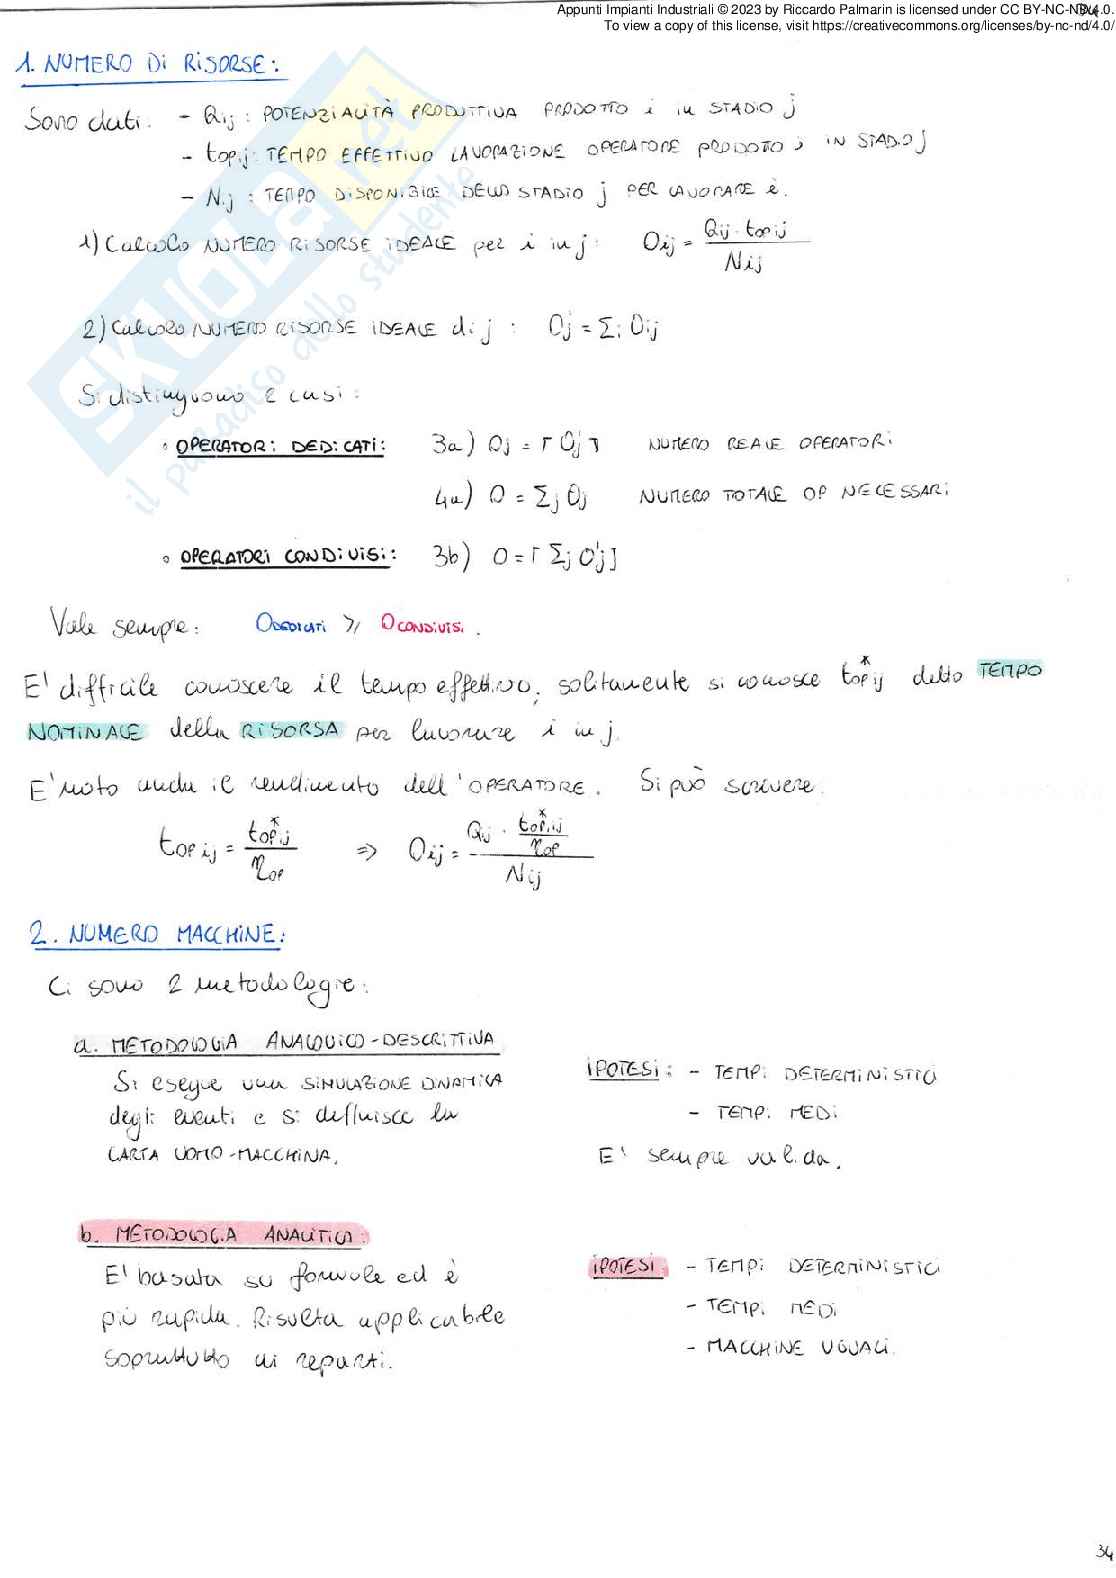 Appunti Impianti Industriali © 2023 by Riccardo Palmarin is licensed under CC BY-NC-ND 4.0.
To view a copy of this license, visit https://creativecommons.org/licenses/by-nc-nd/4.0/
1. NUMERO DI RISORSE:
Sono dati: - Qij : POTENZIALITÀ PRODUTTIVA PRODOTTO i in STADIO j
- topij: TEMPO EFFETTIVO LAVORAZIONE OPERATORE PRODOTO i IN STADIO j
- Nij : TEMPO DISPONIBILE DELLO STADIO j PER LAVORARE i.
1) Calcolo NUMERO RISORSE IDEALE per i in j: Oij = Qij · topij / Nij
2) Calcolo NUMERO RISORSE IDEALE di j : O'j = Σi Oij
Si distinguono 2 casi:
• OPERATORI DEDICATI: 3a) Oj = ⌈O'j⌉ NUMERO REALE OPERATORI
4a) O = Σj Oj NUMERO TOTALE OP NECESSARI
• OPERATORI CONDIVISI: 3b) O = ⌈Σj O'j⌋
Vale sempre: ODEDICATI ≥ OCONDIVISI.
E' difficile conoscere il tempo effettivo, solitamente si conosce top*ij detto TEMPO
NOMINALE della RISORSA per lavorare i in j.
E' noto anche il rendimento dell'OPERATORE. Si può scrivere:
topij = top*ij / ηop ⇒ Oij = Qij · top*ij / ηop / Nij
2. NUMERO MACCHINE:
Ci sono 2 metodologie:
a. METODOLOGIA ANALOGICO-DESCRITTIVA
Si esegue una SIMULAZIONE DINAMICA
degli eventi e si definisce la
CARTA UOMO-MACCHINA.
IPOTESI: - TEMPI DETERMINISTICI
- TEMPI MEDI
E' sempre valida.
b. METODOLOGIA ANALITICA:
E' basata su formule ed è
più rapida. Risulta applicabile
soprattutto ai reparti.
IPOTESI: - TEMPI DETERMINISTICI
- TEMPI MEDI
- MACCHINE UGUALI.
34
SKUOLA.net
il paradiso dello studente